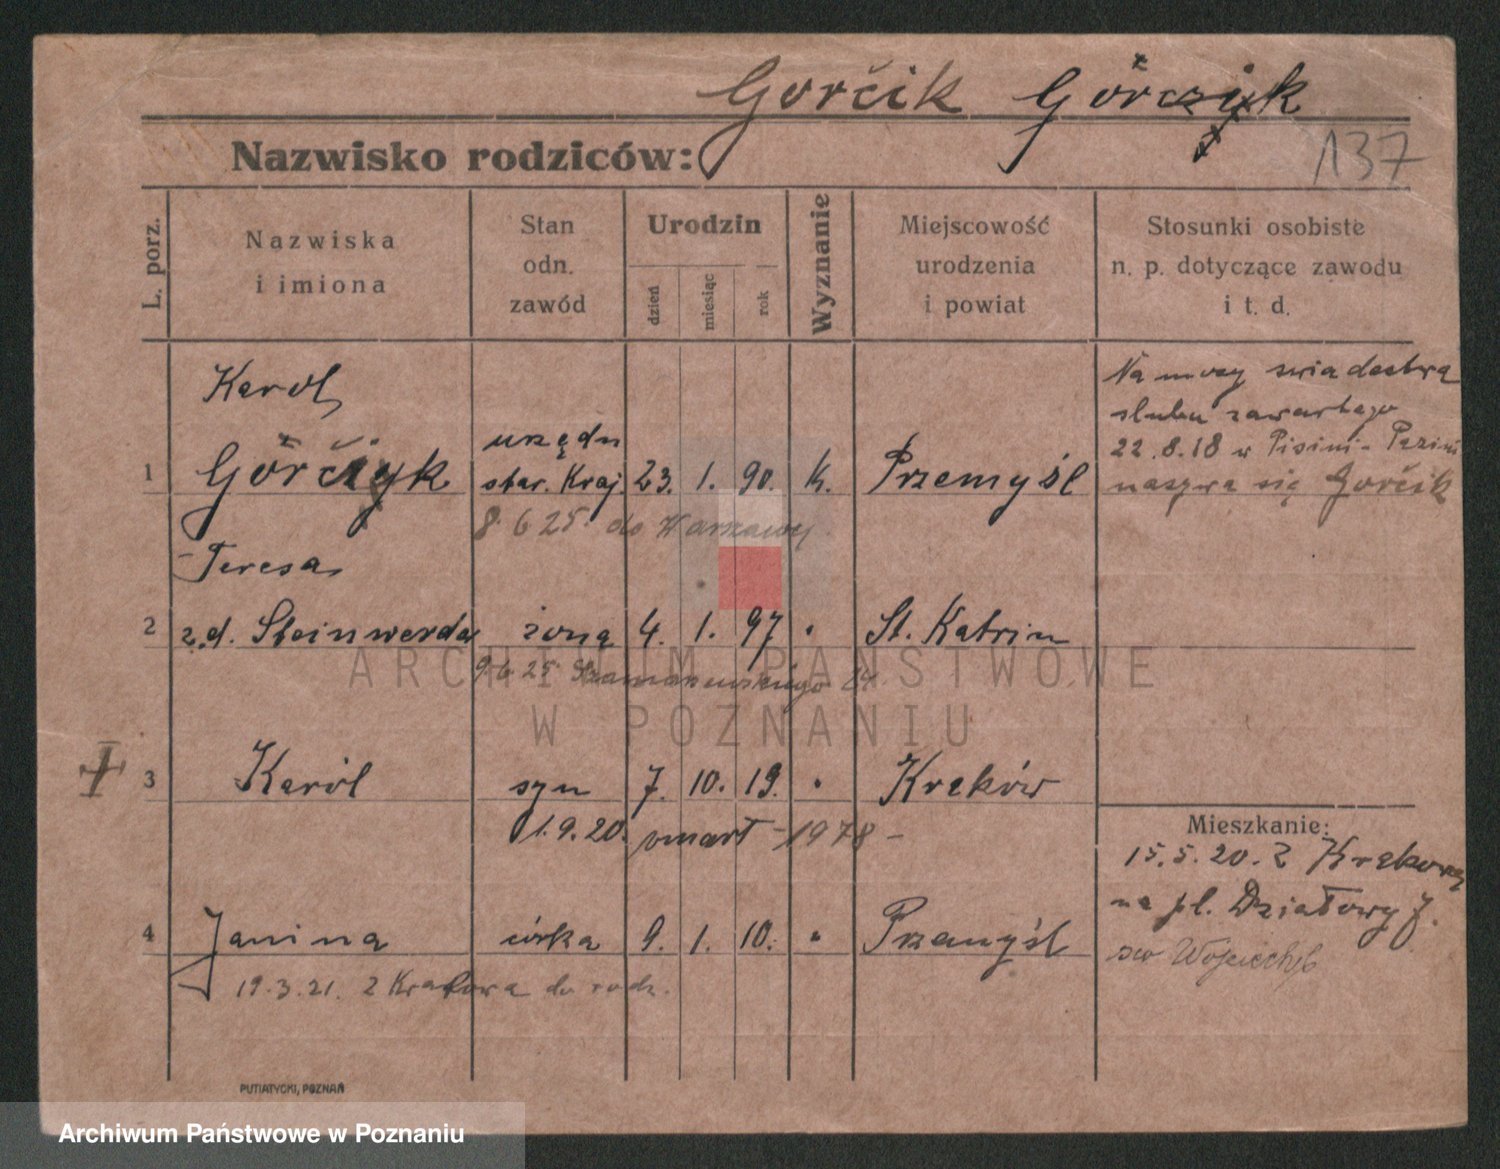 Gorčik Görczyk
137
Nazwisko rodziców:
L. porz.
Nazwiska
i imiona
Stan
odn.
zawód
Urodzin
dzień
miesiąc
rok
Wyznanie
Miejscowość
urodzenia
i powiat
Stosunki osobiste
n. p. dotyczące zawodu
i t. d.
Karol
1 Görczyk urzędn. star. Kraj. 23. 1. 90. K. Przemyśl
8.6.25. do Warszawy
Na mocy swiadectwa
slubu zawartego
22.8.18 w
nazywa się Gorčik
Teresa
2 z d. Steinwerda żona 4. 1. 97 " St. Katrin
9.6.25 Szamarzewskiego 24
3 Karol syn 7. 10. 19. " Kraków
1.9.20. umarł -1978-
Mieszkanie:
15.5.20. z Krakowa
na pl. Działowy 7.
św Wojciech 6
4 Janina córka 9. 1. 10. " Przemyśl
19.3.21. z Krakowa do rodz.
PUTIATYCKI, POZNAŃ
ARCHIWUM PAŃSTWOWE
W POZNANIU
Archiwum Państwowe w Poznaniu